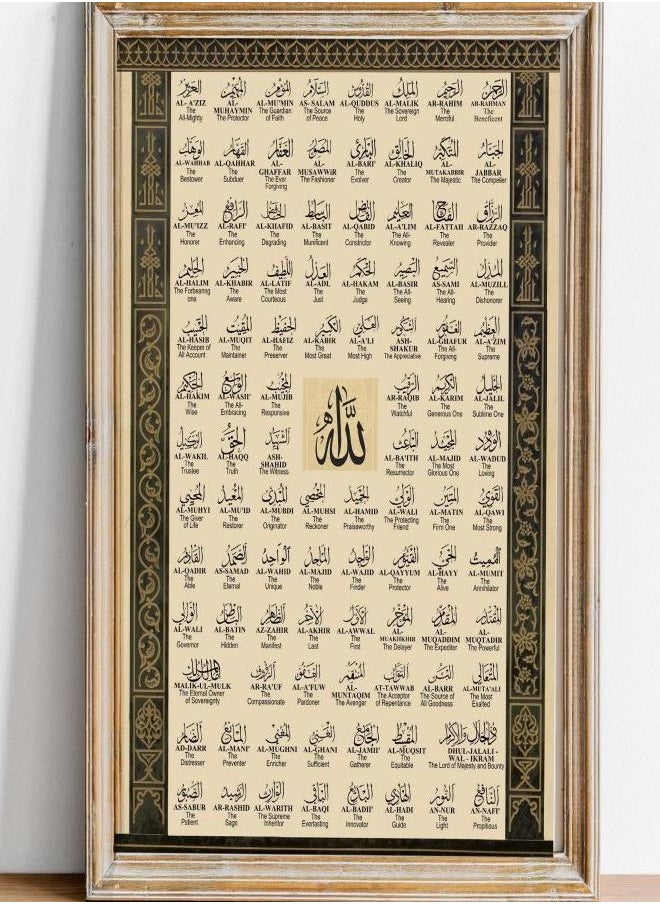 الرحمن
AR-RAHMAN
The
Beneficent
الرحيم
AR-RAHIM
The
Merciful
الملك
AL-MALIK
The Sovereign
Lord
القدوس
AL-QUDDUS
The
Holy
السلام
AS- SALAM
The Source
of Peace
المؤمن
AL-MU'MIN
The Guardian
of Faith
المهيمن
AL-
MUHAYMIN
The Protector
العزيز
AL- A'ZIZ
The
All-Mighty
الجبار
AL-
JABBAR
The Compeller
المتكبر
AL-
MUTAKABBIR
The Majestic
الخالق
AL-KHALIQ
The
Creator
البارئ
AL-BARI'
The
Evolver
المصور
AL-
MUSAWWiR
The Fashioner
الغفار
AL-
GHAFFAR
The Ever
Forgiving
القهار
AL-QAHHAR
The
Subduer
الوهاب
AL-WAHHAB
The
Bestower
الرزاق
AR-RAZZAQ
The
Provider
الفتاح
AL-FATTAH
The
Revealer
العليم
AL-A'LIM
The All-
Knowing
القابض
AL-QABID
The
Constrictor
الباسط
AL-BASIT
The
Munificent
الخافض
AL-KHAFID
The
Degrading
الرافع
AL-RAFI'
The
Enhancing
المعز
AL-MU'IZZ
The
Honorer
المذل
AL-MUZILL
The
Dishonorer
السميع
AS-SAMI
The All-
Hearing
البصير
AL-BASIR
The All-
Seeing
الحكم
AL-HAKAM
The
Judge
العدل
AL-ADL
The
Just
اللطيف
AL-LATIF
The Most
Courteous
الخبير
AL-KHABIR
The
Aware
الحليم
AL-HALIM
The Forbearing
one
العظيم
AL-A'ZIM
The
Supreme
الغفور
AL-GHAFUR
The All-
Forgiving
الشكور
ASH-
SHAKUR
The Appreciative
العلي
AL-A'LI
The
Most High
الكبير
AL-KABIR
The
Most Great
الحفيظ
AL-HAFIZ
The
Preserver
المقيت
AL-MUQIT
The
Maintainer
الحسيب
AL-HASIB
The Keeper of
All Account
الجليل
AL-JALIL
The
Sublime One
الكريم
AL-KARIM
The
Generous One
الرقيب
AR-RAQIB
The
Watchful
المجيب
AL-MUJIB
The
Responsive
الواسع
AL-WASII'
The All-
Embracing
الحكيم
AL-HAKIM
The
Wise
الله
الودود
AL-WADUD
The
Loving
المجيد
AL-MAJID
The Most
Glorious One
الباعث
AL-BA'ITH
The
Resurrector
الشهيد
ASH-
SHAHID
The Witness
الحق
AL-HAQQ
The
Truth
الوكيل
AL-WAKIL
The
Trustee
القوي
AL-QAWI
The
Most Strong
المتين
AL-MATIN
The
Firm One
الولي
AL-WALI
The Protecting
Friend
الحميد
AL-HAMID
The
Praiseworthy
المحصي
AL-MUHSI
The
Reckoner
المبدئ
AL-MUBDI
The
Originator
المعيد
AL-MU'ID
The
Restorer
المحيي
AL-MUHYI
The Giver
of Life
المميت
AL-MUMIT
The
Annihilator
الحي
AL-HAYY
The
Alive
القيوم
AL-QAYYUM
The
Protector
الواجد
AL-WAJID
The
Finder
الماجد
AL-MAJID
The
Noble
الواحد
AL-WAHID
The
Unique
الصمد
AS-SAMAD
The
Eternal
القادر
AL-QADIR
The
Able
المقتدر
AL-
MUQTADIR
The Powerful
المقدم
AL-
MUQADDIM
The Expediter
المؤخر
AL-
MUAKHKHIR
The Delayer
الأول
AL-AWWAL
The
First
الآخر
AL-AKHIR
The
Last
الظاهر
AZ-ZAHIR
The
Manifest
الباطن
AL-BATIN
The
Hidden
الوالي
AL-WALI
The
Governor
المتعالي
AL-MUTA'ALI
The Most
Exalted
البر
AL-BARR
The Source of
All Goodness
التواب
AT-TAWWAB
The Acceptor
of Repentance
المنتقم
AL-
MUNTAQIM
The Avenger
العفو
AL-A'FUW
The
Pardoner
الرؤوف
AR-RA'UF
The
Compassionate
مالك الملك
MALIK-UL-MULK
The Eternal Owner
of Sovereignty
ذو الجلال والإكرام
DHUL-JALALI -
WAL- IKRAM
The Lord of Majesty and Bounty
المقسط
AL-MUQSIT
The
Equitable
الجامع
AL-JAMII'
The
Gatherer
الغني
AL-GHANI
The
Sufficient
المغني
AL-MUGHNI
The
Enricher
المانع
AL-MANI'
The
Preventer
الضار
AD-DARR
The
Distresser
النافع
AN-NAFI'
The
Propitious
النور
AN-NUR
The
Light
الهادي
AL-HADI
The
Guide
البديع
AL-BADII'
The
Innovator
الباقي
AL-BAQI
The
Everlasting
الوارث
AL-WARITH
The Supreme
Inheritor
الرشيد
AR-RASHID
The
Sage
الصبور
AS-SABUR
The
Patient